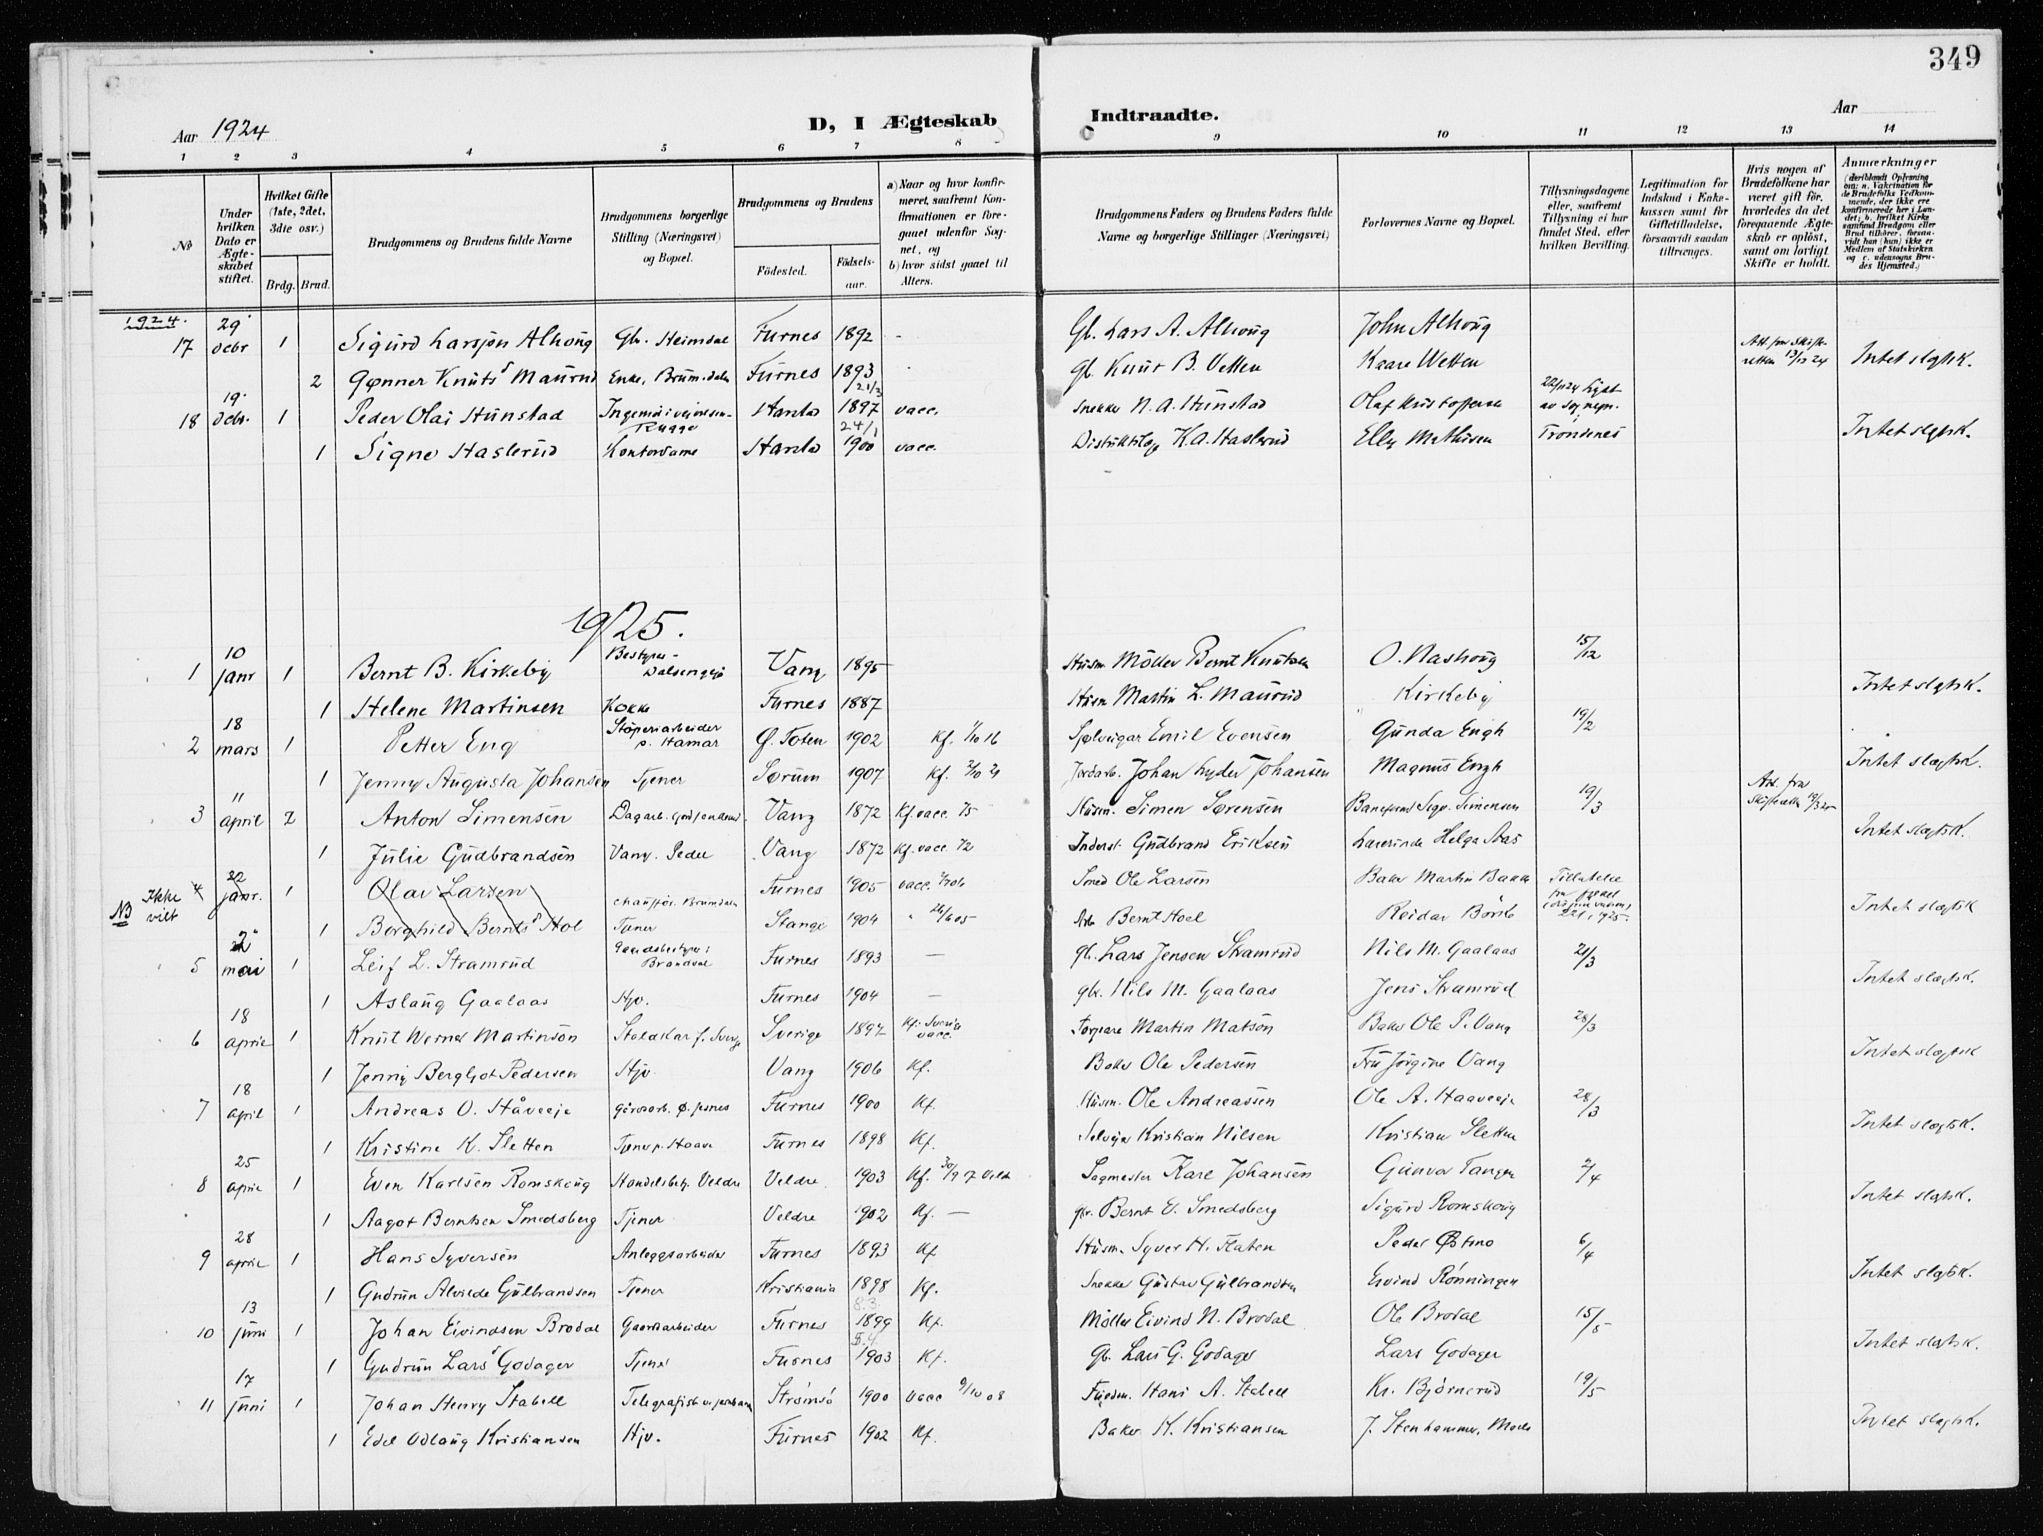 349
Aar 1924 D, I Ægteskab Indtraadte. Aar
1 2 3 4 5 6 7 8 9 10 11 12 13 14
No
Under hvilken Dato er Ægteskabet stiftet.
Hvilket Gifte (1ste, 2det, 3dte osv.)
Brdg. Brud.
Brudgommens og Brudens fulde Navne
Brudgommens borgerlige Stilling (Næringsvei) og Bopæl.
Brudgommens og Brudens
Fødested. Fødsels-aar.
a) Naar og hvor konfirmeret, saafremt Konfirmationen er foregaaet udenfor Sognet, og
b) hvor sidst gaaet til Alters.
Brudgommens Faders og Brudens Faders fulde Navne og borgerlige Stillinger (Næringsvei)
Forlovernes Navne og Bopæl.
Tillysningsdagene eller, saafremt Tillysning ei har fundet Sted, efter hvilken Bevilling.
Legitimation for Indskud i Enkekassen samt for Giftetilladelse, forsaavidt saadan tiltrænges.
Hvis nogen af Brudefolkene har været gift før, hvorledes da det foregaaende Ægteskab er opløst, samt om lovligt Skifte er holdt.
Anmærkninger
1924.
17 29 debr 1 Sigurd Larssøn Alhoug Gb. Heimdal Furnes 1892 - Gb. Lars A. Alhoug John Alhoug
2 Gønner Knuts Maurud Enke, Brumdalen Furnes 1893 Gb. Knut B. Vetten Kaare Wetten Intet slgtsk.
18 19 debr. 1 Peder Olai Hunstad Harstad 1897 vacc. Snekker N. A. Hunstad Olaf Kristoffersen
1 Signe Haslerud Kontordame Harstad 1900 vacc. K. A. Haslerud Elly Mathisen Trondenes Intet slgtsk.
1925.
1 10 janr 1 Bernt B. Kirkeby Bestyrer Vang 1895 Husm Møller Bernt Knutsen O. Nashoug 15/12
1 Helene Martinsen Kokke Furnes 1887 Husm Martin L. Maurud Kirkeby Intet slgtsk.
2 18 mars 1 Petter Eng Støperiarbeider p. Hamar Ø. Toten 1902 Kf. 1/10 16 Sjølveigar Emil Evensen Gunda Engh 19/2
1 Jenny Augusta Johansen Tjener Sørum 1907 Kf. Jordarb. Johan Lyder Johansen Magnus Engh Intet slægtsk.
3 11 april 2 Anton Simensen Vang 1872 Kf. vacc. 75 Husm. Simen Sørensen Simensen 19/3
1 Julie Gudbrandsen Vang 1872 Kf. vacc. 72 Inderst Gudbrand Eriksen Lærerinde Helga Aas Intet slægtsk.
NB Ikke vilt 4 22 janr. 1 Olav Larsen chauffør. Brumdalen Furnes 1905 vacc. Smed Ole Larsen Baker Martin Bakke Tilladelse
1 Borghild Bernts Hol Tjener Stange 1904 Arb Bernt Hoel Reidar Børke Intet slægtsk
5 2 mai 1 Leif L. Stramrud Gaardsbestyrer: Brandval Furnes 1893 — gb. Lars Jensen Stramrud Nils M. Gaalaas 21/3
1 Aslaug Gaalaas Hjv. Furnes 1904 — gbr. Nils M. Gaalaas Jens Stramrud Intet slægtsk.
6 18 april 1 Knut Werner Martinson Sverige 1897 Kf. Sverig vacc. Martin Matson Baker Ole P. Vang 28/3
1 Jenny Bergljot Pedersen Hjv. Vang 1906 Kf. Baker Ole Pedersen Fru Jørgine Vang Intet slægtsk
7 18 april 1 Andreas O. Håveeje Furnes 1900 Kf. Husm. Ole Andreassen Ole A. Haaveeje 28/3
1 Kristine K. Sletten Furnes 1898 Kf. Selveier Kristian Nilsen Kristian Sletten Intet slægtsk.
8 25 april 1 Even Karlsen Romskoug Handelsbetj. Veldre Veldre 1903 Kf. Sagmester Karl Johansen Gunvor Tangen 2/4
1 Aagot Berntsen Smedsberg Tjener Veldre 1902 Kf. — gbr. Bernt E. Smedsberg Sigurd Romskoug Intet slgtsk.
9 28 april 1 Hans Syversen Anleggsarbeider Furnes 1893 Kf Husm. Syver H. Flaten Peder Østmo 6/4
1 Gudrun Alvilde Gulbrandsen Tjener Kristiania 1898 Kf. Snekker Gustav Gulbrandsen Eivind Rønningen Intet slgtsk.
10 13 juni 1 Johan Eivindsen Brodal Gaardsarbeider Furnes 8.3. 1899 Kf. Møller Eivind N. Brodal Ole Brodal 15/5
1 Gudrun Lars Godager Tjener Furnes 5.4. 1903 Kf. Gb. Lars G. Godager Lars Godager Intet slgtsk.
11 17 juni 1 Johan Henry Stabell Strømsø 1900 vacc 9/10 08 Hans A. Stabell Kr. Bjørnerud 19/5
1 Edel Odlaug Kristiansen Hjv. Furnes 1902 Kf. Baker K. Kristiansen J. Stenhammer, Moelv Intet slægtsk.